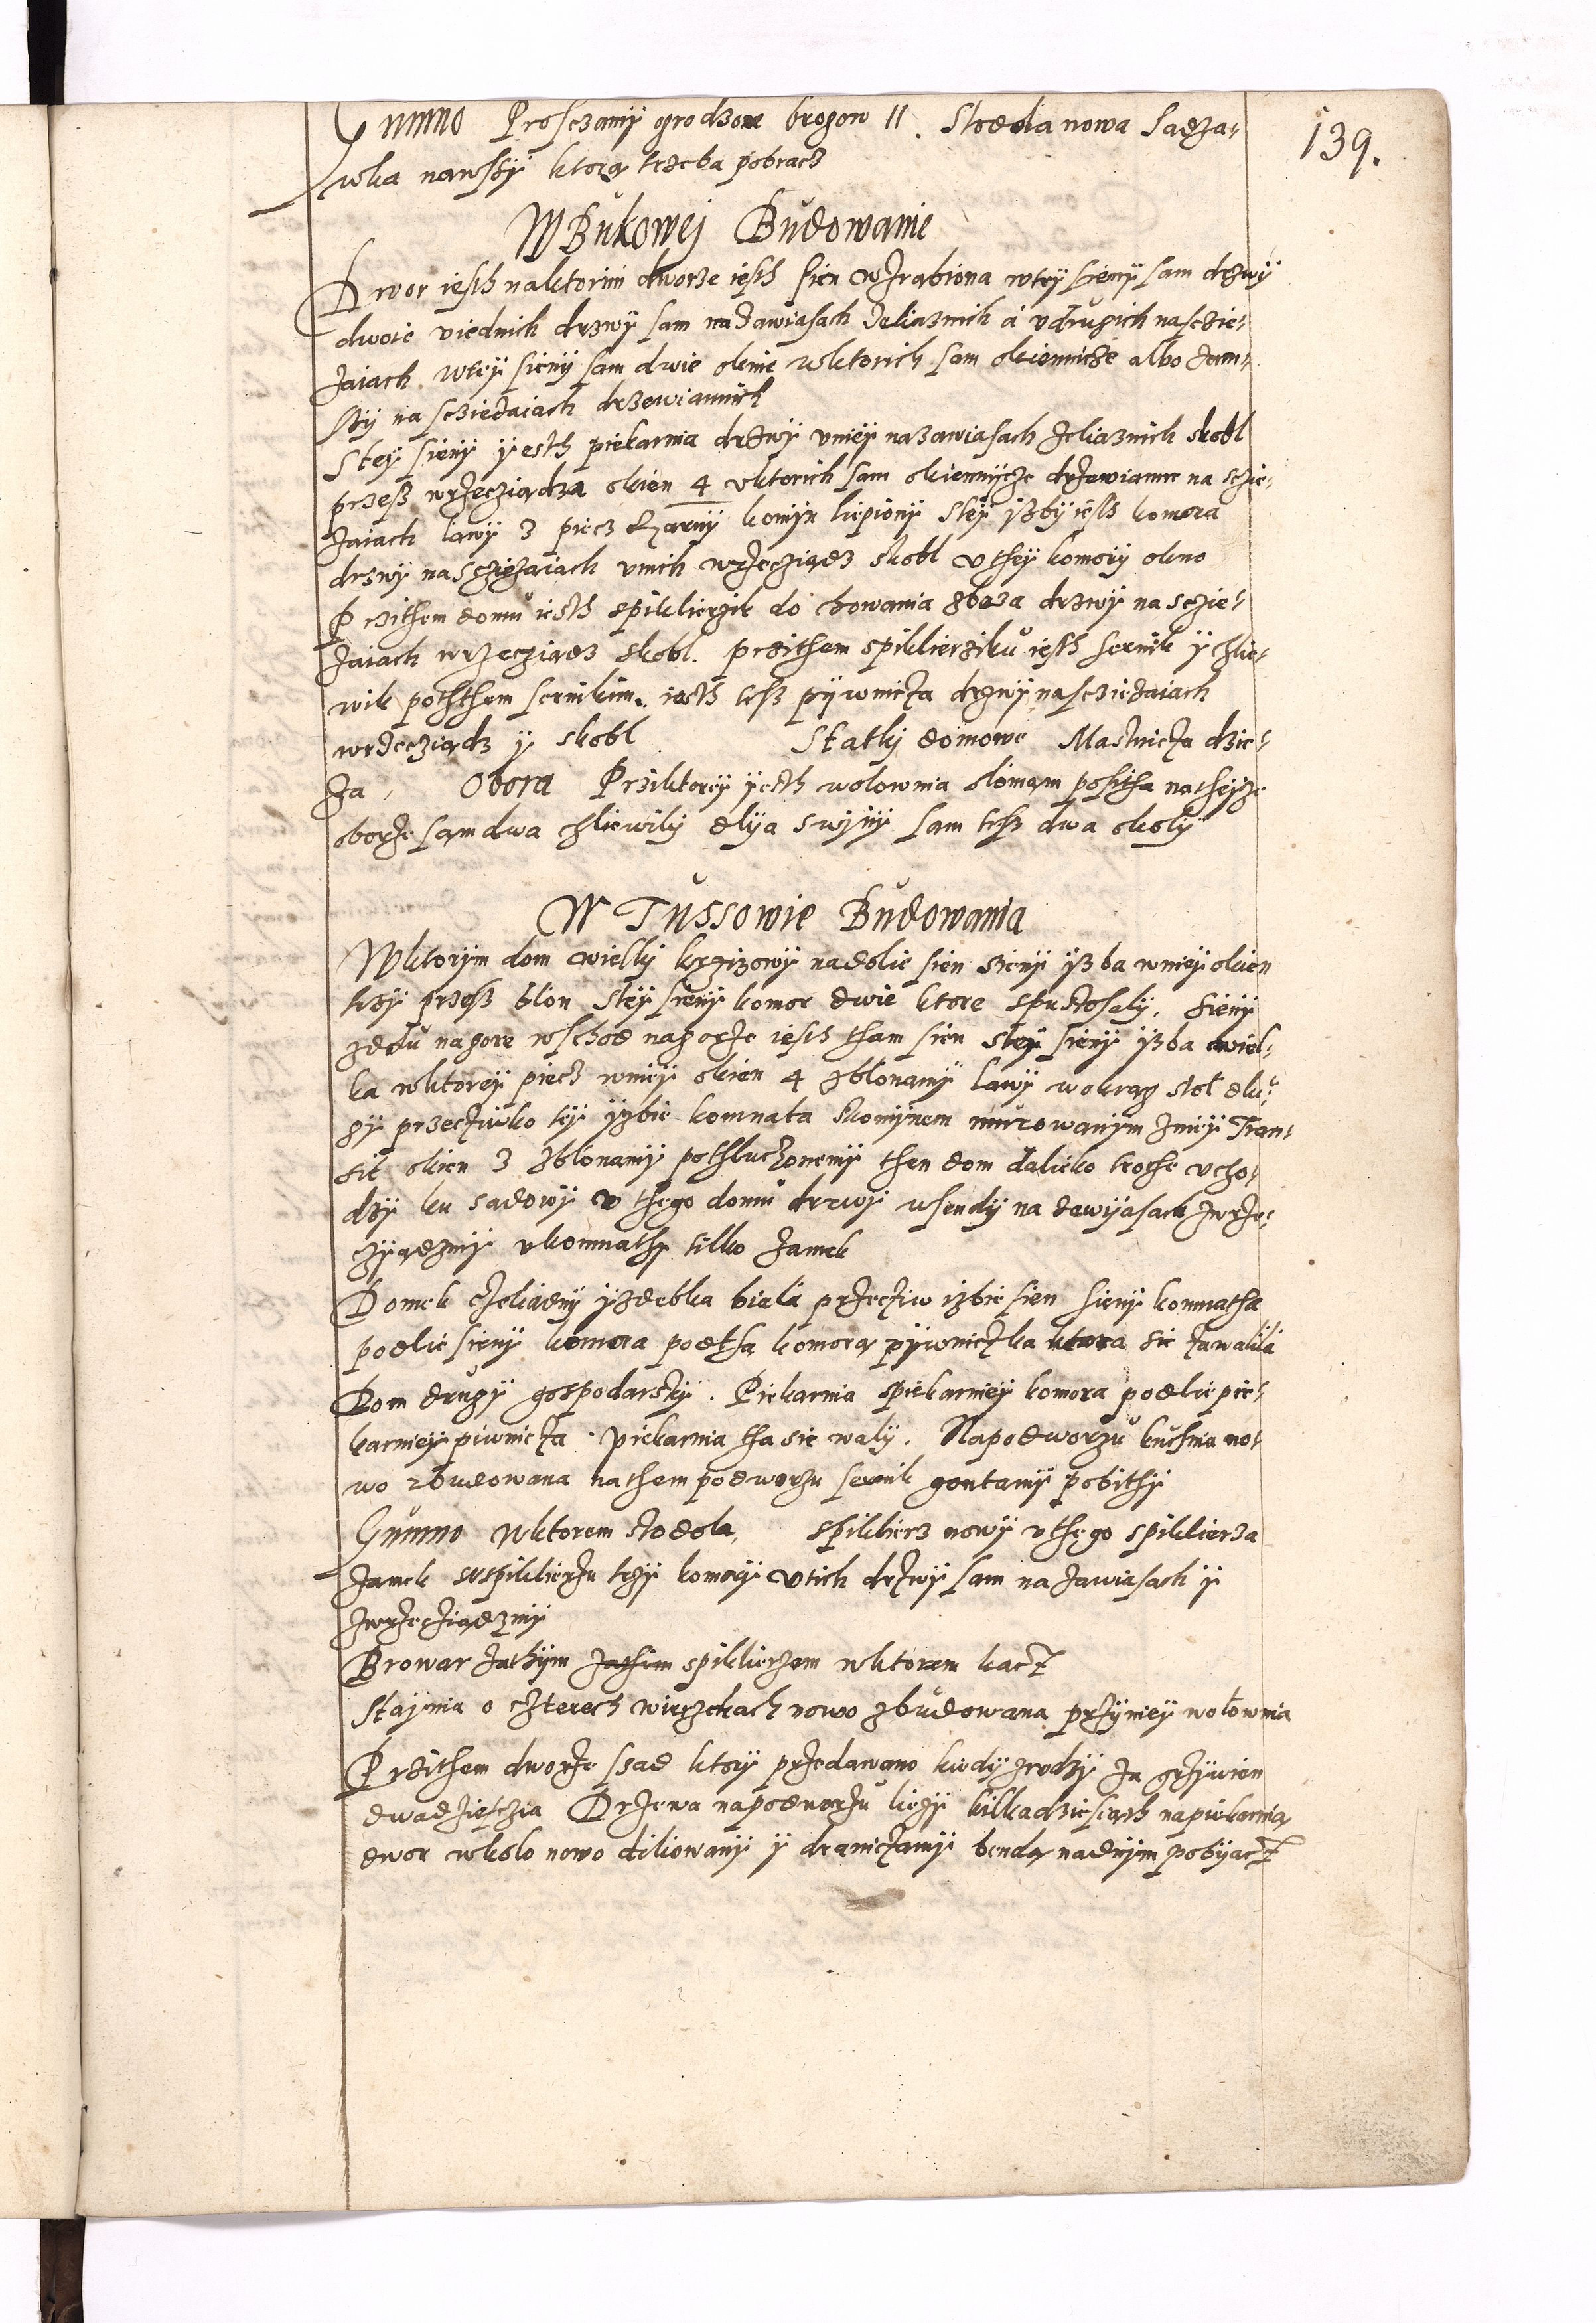 139.
Gumno Proszczamy grodzone brogow 11. Stodola nowa Sadza-
wka nawssÿ ktorą trzeba pobracz
W Bukowej Budowanie
Dwor iesth naktorim dworze iesth sien wzrąbiona wtey sienÿ sam drzwÿ
dwoie v iednich drzwÿ sam na zawiasach zeliaznich á v drugich nasczie-
zaiach wteÿ sienÿ sam dwie oknie wktorich sam okiennicze albo zam-
na scziezaiach drzewiannich
Steÿ sienÿ ÿesth piekarnia drzwÿ vnieÿ nazawiasach zeliaznich skobl
przesz wrzecziądza okien 4 vktorich sam okiennÿcze drzewianne na sczie-
zaiach lawÿ 3 piecz czarnÿ komÿn liepionÿ Steÿ ÿzbÿ iesth komora
drzwÿ nasczieżaiach vnich wrzecziądz skobl v theÿ komorÿ okno
Przithem domu iesth spiklierzik do chowania zboza drzwÿ na sczie-
zaiach wrzecziądz skobl. przithem spiklierziku iesth sernik ÿ chlie-
wik poththem sernikim iesth tesz pÿwnicza drzwÿ nasczieżaiach
wrzecziądz ÿ skobl Statkj domowe Masznicza dzie-
za, Obora Prziktoreÿ ÿesth wolownia slomąm poszita natheÿze
oborze sąm dwa chliewikj dlÿa swÿnÿ sam tesz dwa okolÿ
W Tussowie Budowania
Wktorÿm dom wielkÿ krzizowÿ nadolie sien sienÿ ÿzba wnieÿ okien
trzÿ przesz blon steÿ sienÿ komor dwie ktore spustoszalÿ. sienÿ
zdolu nagore wschod nagorze iesth tham sien steÿ sienÿ ÿzba wiel-
ka wktoreÿ piecz wnieÿ okien 4 zblonamÿ lawÿ wokrąg stol dlu-
gÿ przecziwko teÿ ÿzbie komnata skomÿnem murowanÿm znieÿ Tran-
sit okien 3 zblonamÿ pothluczonemÿ then dom dalieko troche vcho-
dzÿ ku sadowÿ v thego domu drzwÿ wsendÿ na zawÿasach zwrze-
czÿądzmÿ vkomnathÿ tilko zamek
Domek czeliadnÿ ÿzdebka biala przecziw izbie sien sienÿ komnatha
podlie sienÿ komora podthą komorą pÿwniczka ktora sie zawalila
Dom drugÿ gospodarskÿ. Piekarnia spiekarnieÿ komora podlie pie-
karnieÿ piwnicza piekarnia tha sie walÿ. Napodworzu kuchnia no-
wo zbudowana nathem podworzu sernik gontamÿ pobithÿ
Gumno wktorem stodola, spiklierz nowÿ vthego spiklierza
zamek wspiklierzu trzÿ komorÿ vtich drzwÿ sam na zawiasach ÿ
zwrzecziądzmÿ
Browar zathÿm zathim spiklierzem wktorem kacz
Staÿnia o czterech wierzchach nowo zbudowana przÿnieÿ wolownia
Przithem dworze ssad ktorÿ przedawano kiedÿ zrodzÿ za grzÿwien
dwadziesczia Drzewa napodworzu liezÿ kilkadziesiąth napiekarnią
dwor wkolo nowo diliowanÿ ÿ draniczamÿ bendą nadnÿm pobÿacz